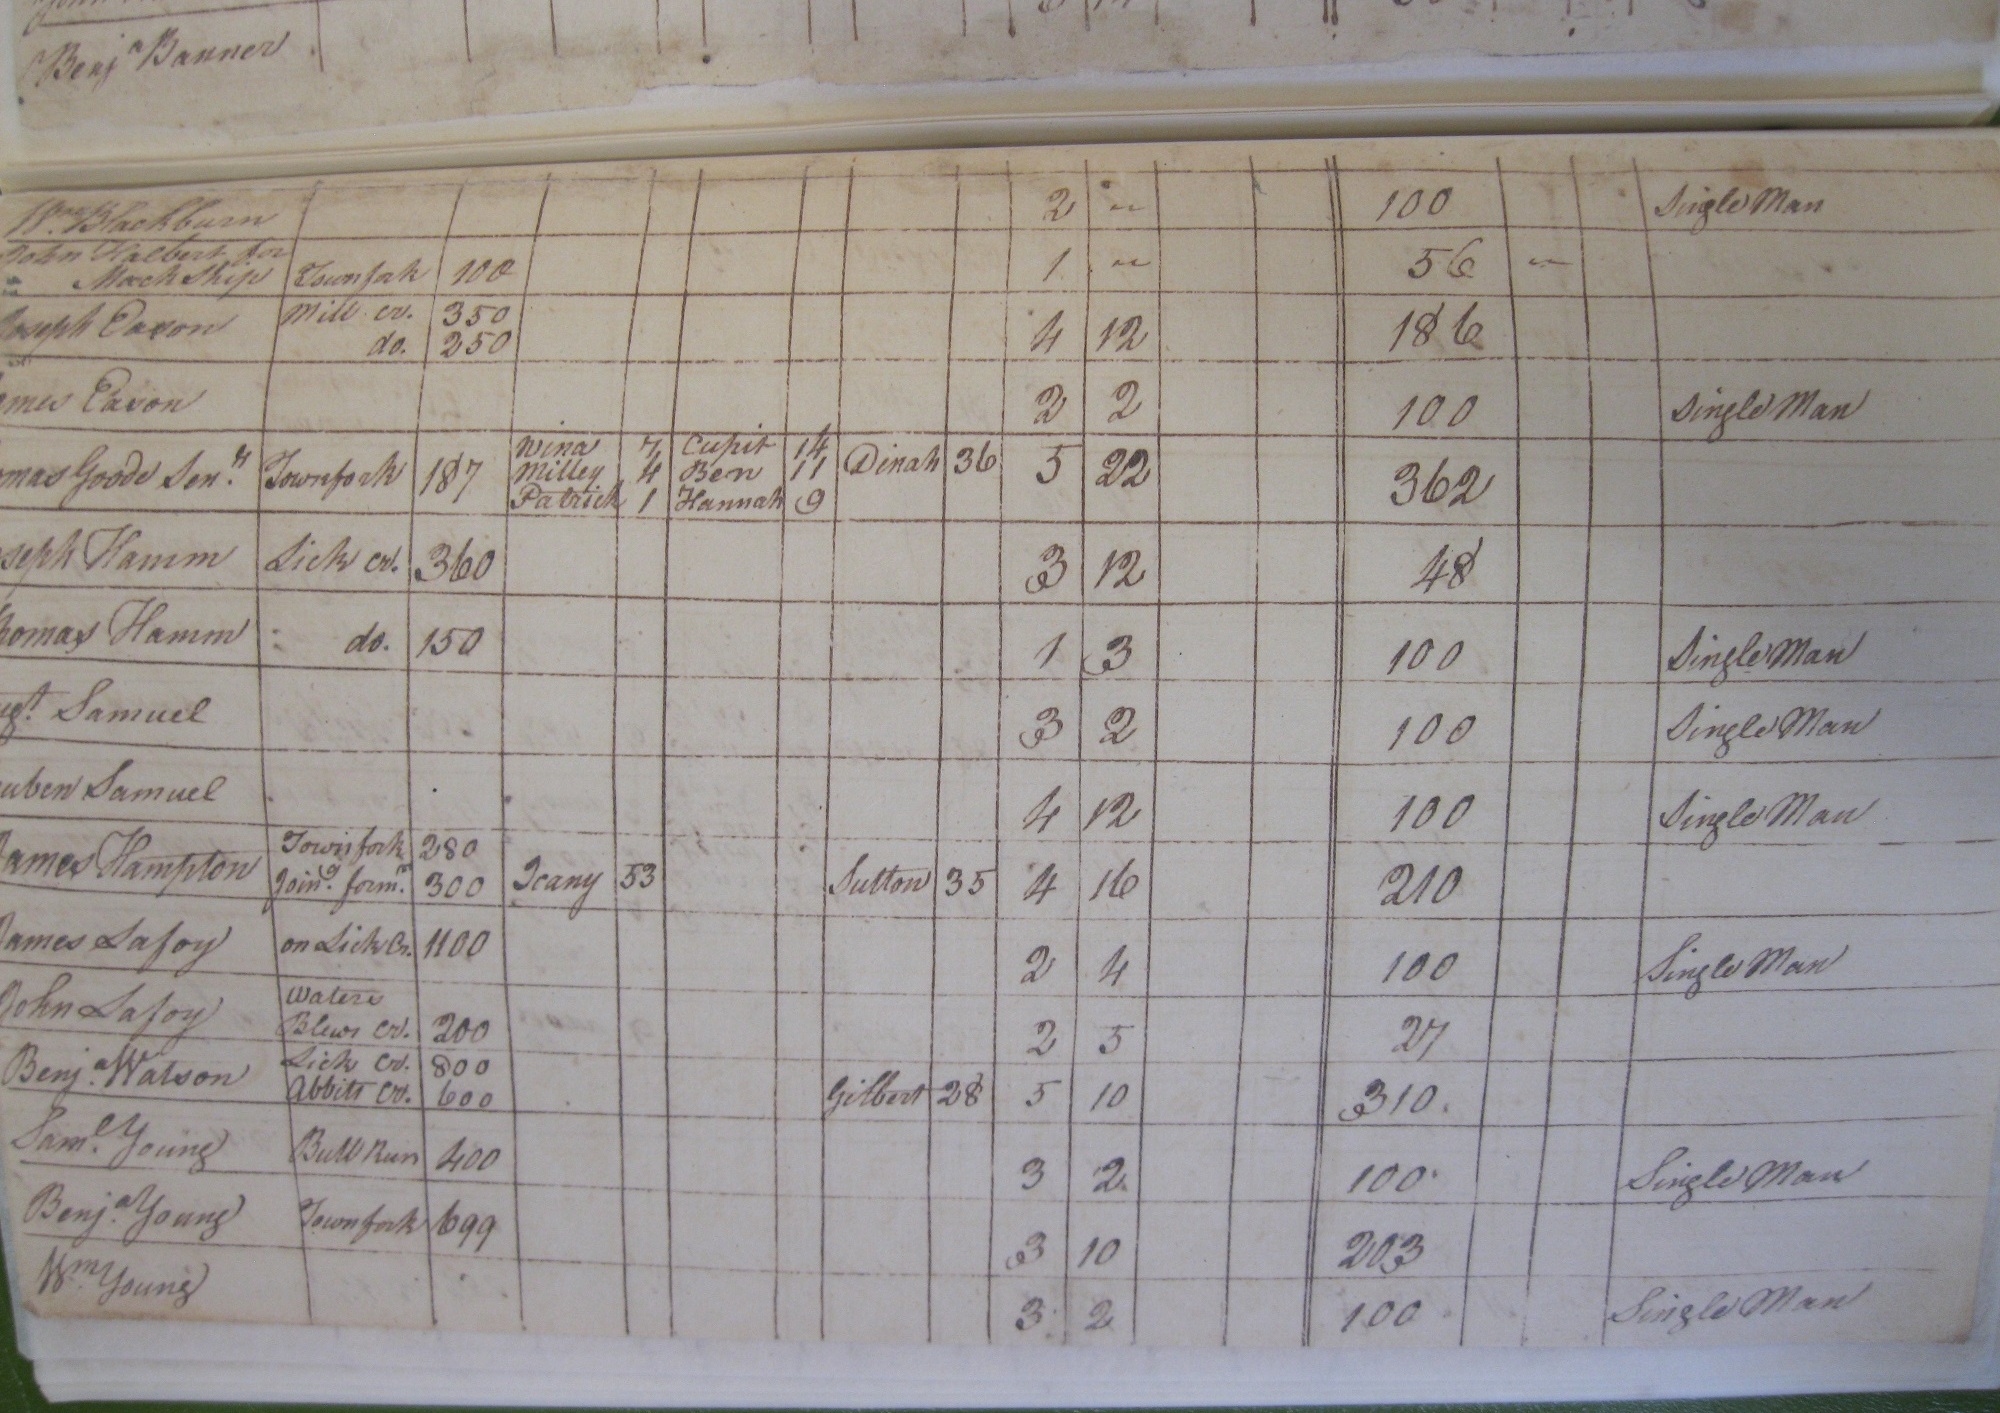 Benjª Banner
Wm Blackburn 2 " 100 Single Man
John Halbert for
Mock Ship Townfork 100 1 " 56 "
Joseph Eason Mill cr. 350 4 12 186
do. 250
ames Eason 2 2 100 Single Man
Wina 7 Cupit 14
omas Goode Senr. Townfork 187 Milley 4 Ben 11 Dinah 36 5 22 362
Patrick 1 Hannah 9
seph Hamm Lick cr. 360 3 12 48
homas Hamm do. 150 1 3 100 Single Man
ugt. Samuel 3 2 100 Single Man
euben Samuel 4 12 100 Single Man
Townfork 280
James Hampton Joing. formr. 300 Icany 53 Sutton 35 4 16 210
James Lafoy on Lick Cr. 1100 2 4 100 Single Man
Waters
John Lafoy Blews cr. 200 2 5 27
Lick cr. 800
Benjª. Watson Abbits cr. 600 Gilbert 28 5 10 310.
Saml. Young Bull Run 400 3 2 100 Single Man
Benjª. Young Townfork 699 3 10 203
Wm Young 3 2 100 Single Man